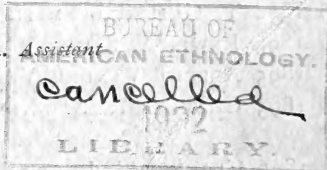 BUREAU OF
Assistant
AMERICAN ETHNOLOGY.
cancelled
1932
LIBRARY.